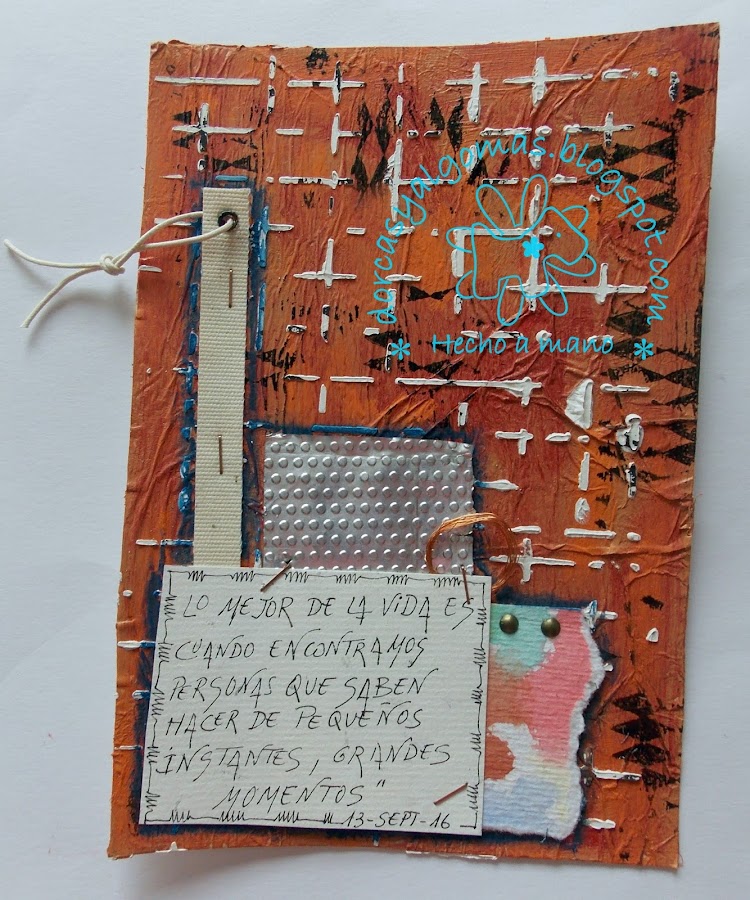 darcasyalgomas.blogspot.com
* Hecho a mano *
LO MEJOR DE LA VIDA ES
CUANDO ENCONTRAMOS
PERSONAS QUE SABEN
HACER DE PEQUEÑOS
INSTANTES, GRANDES
MOMENTOS"
13-SEPT-16